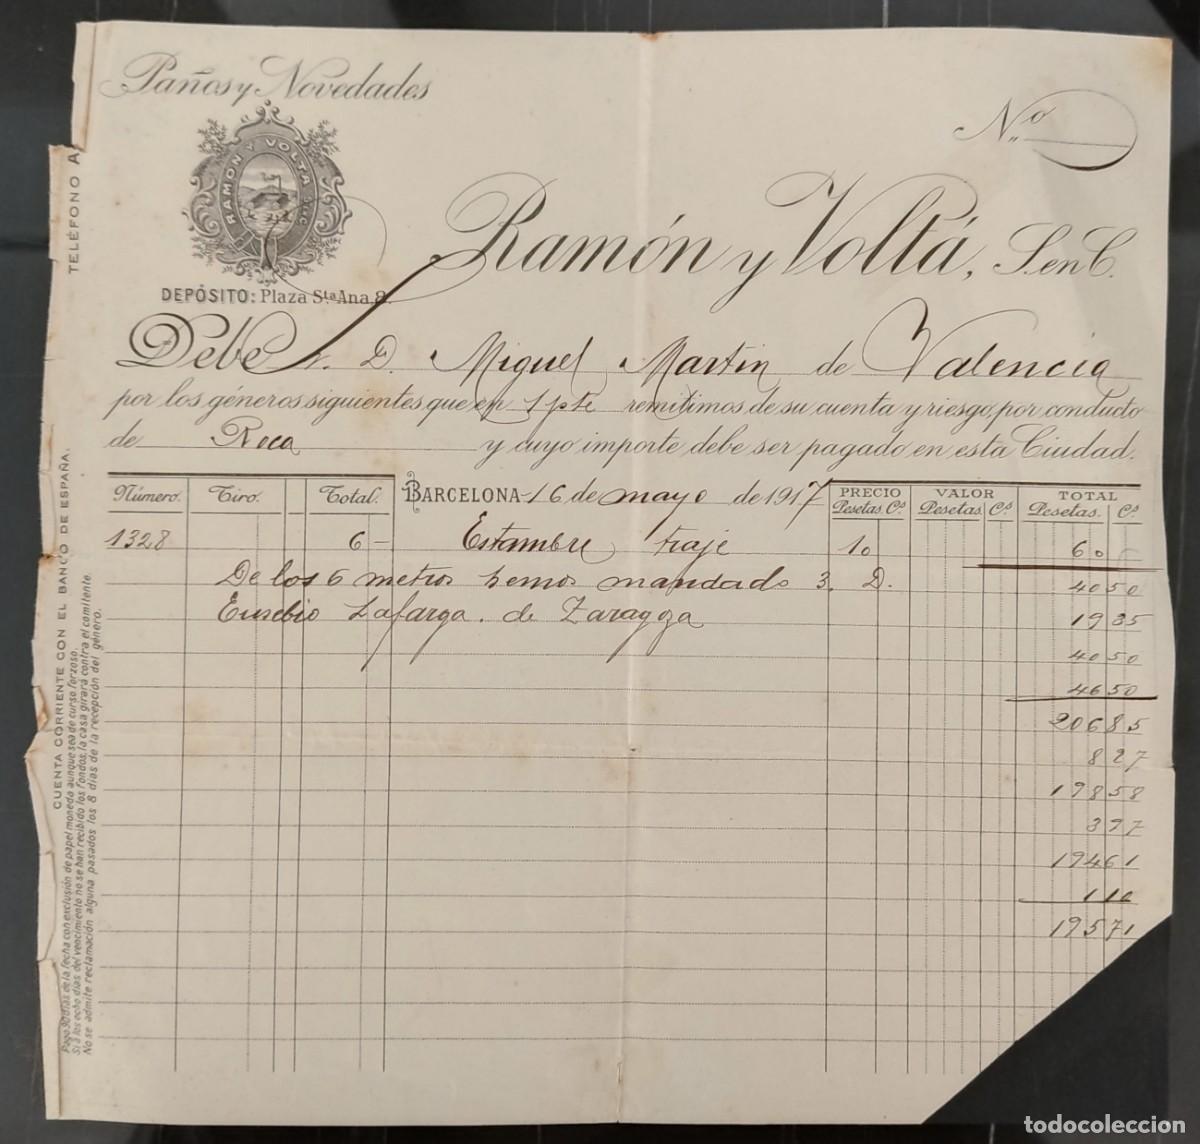 Paños y Novedades
RAMON Y VOLTA S. en C.
DEPÓSITO: Plaza Sta Ana, 8.
Nº
Ramón y Voltá, S. en C.
Debe D. Miguel Martin de Valencia
por los géneros siguientes que en 1 pte remitimos de su cuenta y riesgo, por conducto
de Roca y cuyo importe debe ser pagado en esta Ciudad.
Número. Tiro. Total. BARCELONA 16 de mayo de 1917 PRECIO Pesetas Cs VALOR Pesetas Cs TOTAL Pesetas. Cs
1328 6 — Estambre traje 10 60
De los 6 metros hemos mandado 3. D. 40 50
Eusebio Lafarga. de Zaragoza 19 35
40 50
46 50
206 85
8 27
198 58
3 97
194 61
1 10
195 71
TELÉFONO A
CUENTA CORRIENTE CON EL BANCO DE ESPAÑA.
Pago 90 días de la fecha con exclusión de papel moneda aunque sea de curso forzoso.
Si a los ocho días del vencimiento no se han recibido los fondos, la casa girará contra el comitente.
No se admite reclamación alguna pasados los 8 días de la recepción del género.
todocoleccion